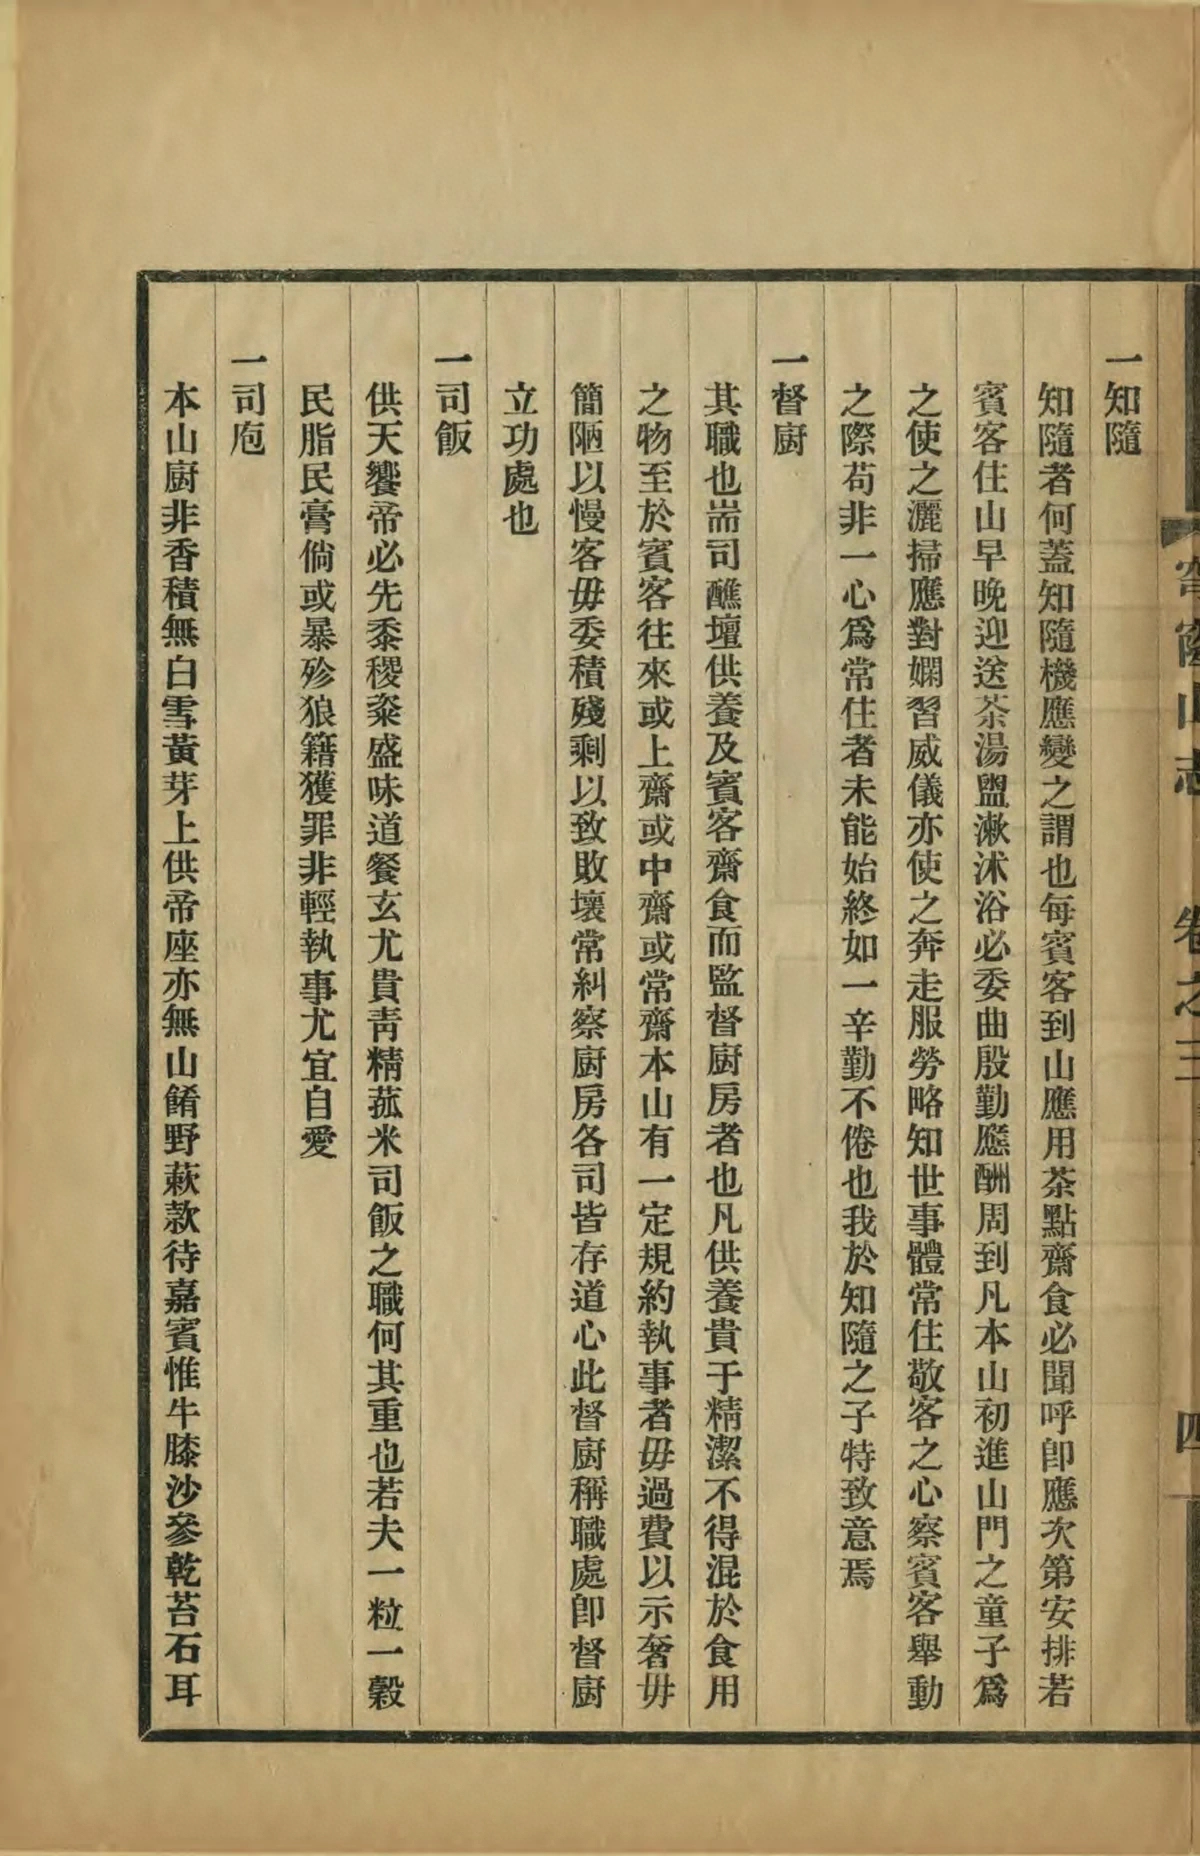 一知隨
知隨者何蓋知隨機應變之謂也每賓客到山應用茶點齋食必聞呼卽應次第安排若
賓客住山早晚迎送茶湯盥漱沭浴必委曲殷勤應酬周到凡本山初進山門之童子爲
之使之灑掃應對嫻習威儀亦使之奔走服勞略知世事體常住敬客之心察賓客舉動
之際苟非一心爲常住者未能始終如一辛勤不倦也我於知隨之子特致意焉
一督廚
其職也耑司醮壇供養及賓客齋食而監督廚房者也凡供養貴于精潔不得混於食用
之物至於賓客往來或上齋或中齋或常齋本山有一定規約執事者毋過費以示奢毋
簡陋以慢客毋委積殘剩以致敗壞常糾察廚房各司皆存道心此督廚稱職處卽督廚
立功處也
一司飯
供天饗帝必先黍稷粢盛味道餐玄尤貴靑精菰米司飯之職何其重也若夫一粒一穀
民脂民膏倘或暴殄狼籍獲罪非輕執事尤宜自愛
一司庖
本山廚非香積無白雪黃芽上供帝座亦無山餚野蔌款待嘉賓惟牛膝沙參乾苔石耳
山志
卷之三
四